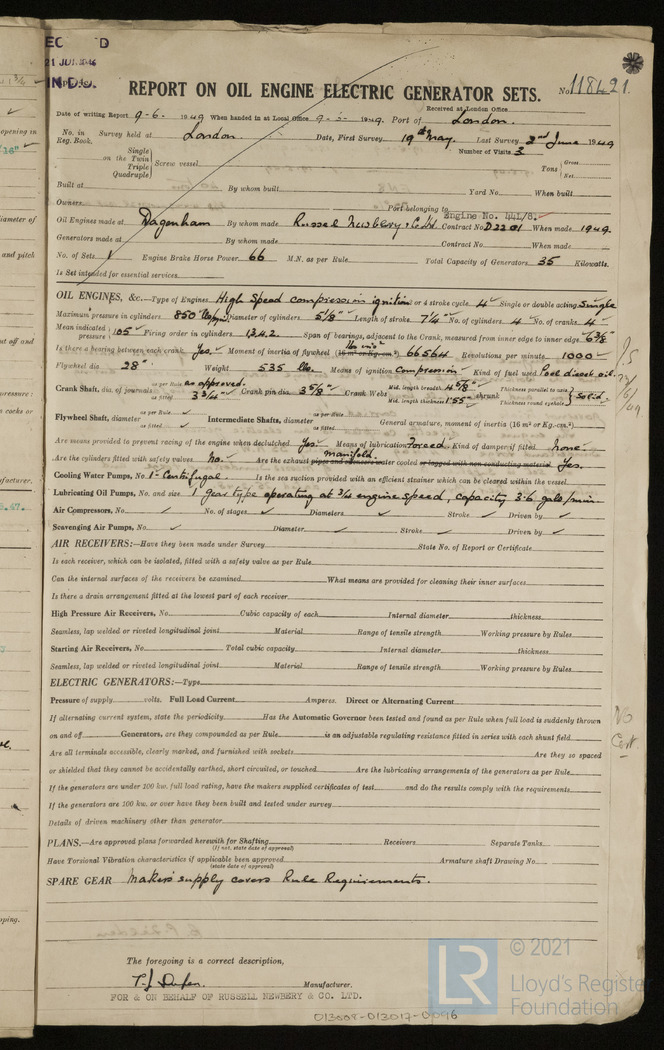 21 JUL 1946
REPORT ON OIL ENGINE ELECTRIC GENERATOR SETS.
No. 118421.
Received at London Office
Date of writing Report 9-6. 1949 When handed in at Local Office 1949. Port of London.
No. in Reg. Book. Survey held at London. Date, First Survey 19th May. Last Survey 2nd June 1949
Number of Visits 3
Single on the Twin Triple Quadruple Screw vessel Tons Gross Net
Built at By whom built Yard No. When built
Owners Port belonging to
Engine No. 441/8.
Oil Engines made at Dagenham By whom made Russell Newbery & Co Ltd Contract No. D2201 When made 1949.
Generators made at By whom made Contract No. When made
No. of Sets 1 Engine Brake Horse Power 66 M.N. as per Rule Total Capacity of Generators 35 Kilowatts.
Is Set intended for essential services
OIL ENGINES, &c.—Type of Engines High Speed compression ignition or 4 stroke cycle 4 Single or double acting Single
Maximum pressure in cylinders 850 Diameter of cylinders 5 1/8" Length of stroke 7 1/4" No. of cylinders 4 No. of cranks 4
Mean indicated pressure 105 Firing order in cylinders 1342. Span of bearings, adjacent to the Crank, measured from inner edge to inner edge 6 3/8"
Is there a bearing between each crank Yes. Moment of inertia of flywheel (16 m² or Kg.-cm.²) 66564 Revolutions per minute 1000
Flywheel dia. 28" Weight 535 lbs. Means of ignition Compression Kind of fuel used Pool diesel oil.
Crank Shaft, dia. of journals as per Rule as approved. as fitted 3 3/4" Crank pin dia. 3 5/8" Crank Webs Mid. length breadth 4 5/8" Mid. length thickness 1.55" shrunk Thickness parallel to axis Thickness round eyehole Solid.
Flywheel Shaft, diameter as per Rule as fitted Intermediate Shafts, diameter as per Rule as fitted General armature, moment of inertia (16 m² or Kg.-cm.²)
Are means provided to prevent racing of the engine when declutched Yes. Means of lubrication Forced Kind of damper if fitted None.
manifold.
Are the cylinders fitted with safety valves No. Are the exhaust pipes and silencers water cooled or lagged with non conducting material Yes.
Cooling Water Pumps, No. 1- Centrifugal. Is the sea suction provided with an efficient strainer which can be cleared within the vessel
Lubricating Oil Pumps, No. and size 1 Gear type operating at 3/4 engine speed, capacity 3.6 gals/min.
Air Compressors, No. No. of stages Diameters Stroke Driven by
Scavenging Air Pumps, No. Diameter Stroke Driven by
AIR RECEIVERS:—Have they been made under Survey State No. of Report or Certificate
Is each receiver, which can be isolated, fitted with a safety valve as per Rule
Can the internal surfaces of the receivers be examined What means are provided for cleaning their inner surfaces
Is there a drain arrangement fitted at the lowest part of each receiver
High Pressure Air Receivers, No. Cubic capacity of each Internal diameter thickness
Seamless, lap welded or riveted longitudinal joint Material Range of tensile strength Working pressure by Rules
Starting Air Receivers, No. Total cubic capacity Internal diameter thickness
Seamless, lap welded or riveted longitudinal joint Material Range of tensile strength Working pressure by Rules
ELECTRIC GENERATORS:—Type
Pressure of supply volts. Full Load Current Amperes. Direct or Alternating Current
If alternating current system, state the periodicity Has the Automatic Governor been tested and found as per Rule when full load is suddenly thrown
on and off Generators, are they compounded as per Rule is an adjustable regulating resistance fitted in series with each shunt field
No Cert.
Are all terminals accessible, clearly marked, and furnished with sockets Are they so spaced
or shielded that they cannot be accidentally earthed, short circuited, or touched Are the lubricating arrangements of the generators as per Rule
If the generators are under 100 kw. full load rating, have the makers supplied certificates of test and do the results comply with the requirements
If the generators are 100 kw. or over have they been built and tested under survey
Details of driven machinery other than generator
PLANS.—Are approved plans forwarded herewith for Shafting Receivers Separate Tanks
(If not, state date of approval)
Have Torsional Vibration characteristics if applicable been approved Armature shaft Drawing No.
(state date of approval)
SPARE GEAR Makers' supply covers Rule Requirements.
The foregoing is a correct description,
Manufacturer.
FOR & ON BEHALF OF RUSSELL NEWBERY & CO. LTD.
013009-013017-0096
LR
© 2021
Lloyd's Register
Foundation